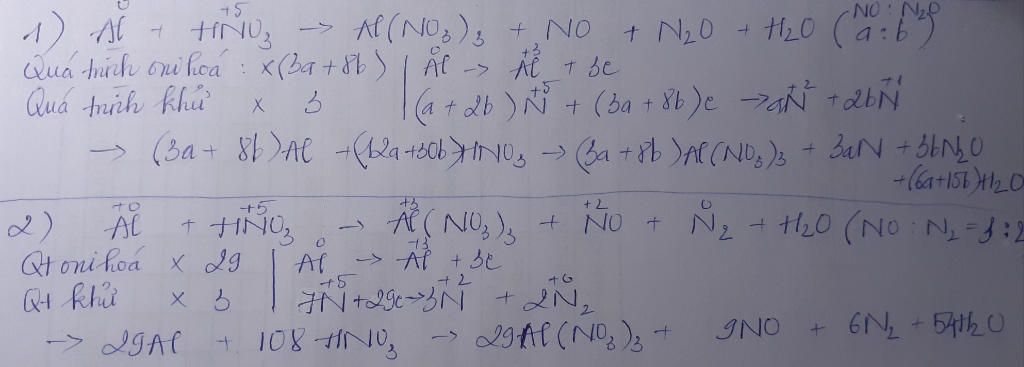 1) Al⁰ + HN⁺⁵O₃ → Al(NO₃)₃ + NO + N₂O + H₂O (NO : N₂O a : b)
Quá trình oxi hoá : x(3a+8b) | Al⁰ → Al⁺³ + 3e
Quá trình khử x 3 | (a + 2b) N⁺⁵ + (3a + 8b)e → aN⁺² + 2bN⁺¹
→ (3a + 8b)Al + (12a+30b)HNO₃ → (3a + 8b)Al(NO₃)₃ + 3aN + 3bN₂O
+(6a+15b)H₂O
2) Al⁺⁰ + HN⁺⁵O₃ → Al⁺³(NO₃)₃ + N⁺²O + N⁰₂ + H₂O (NO : N₂ = 3 : 2
Qt oxi hoá x 29 | Al⁰ → Al⁺³ + 3e
Qt khử x 3 | 7N⁺⁵ + 29e → 3N⁺² + 2N⁺⁰₂
→ 29Al + 108 HNO₃ → 29Al(NO₃)₃ + 9NO + 6N₂ + 54H₂O